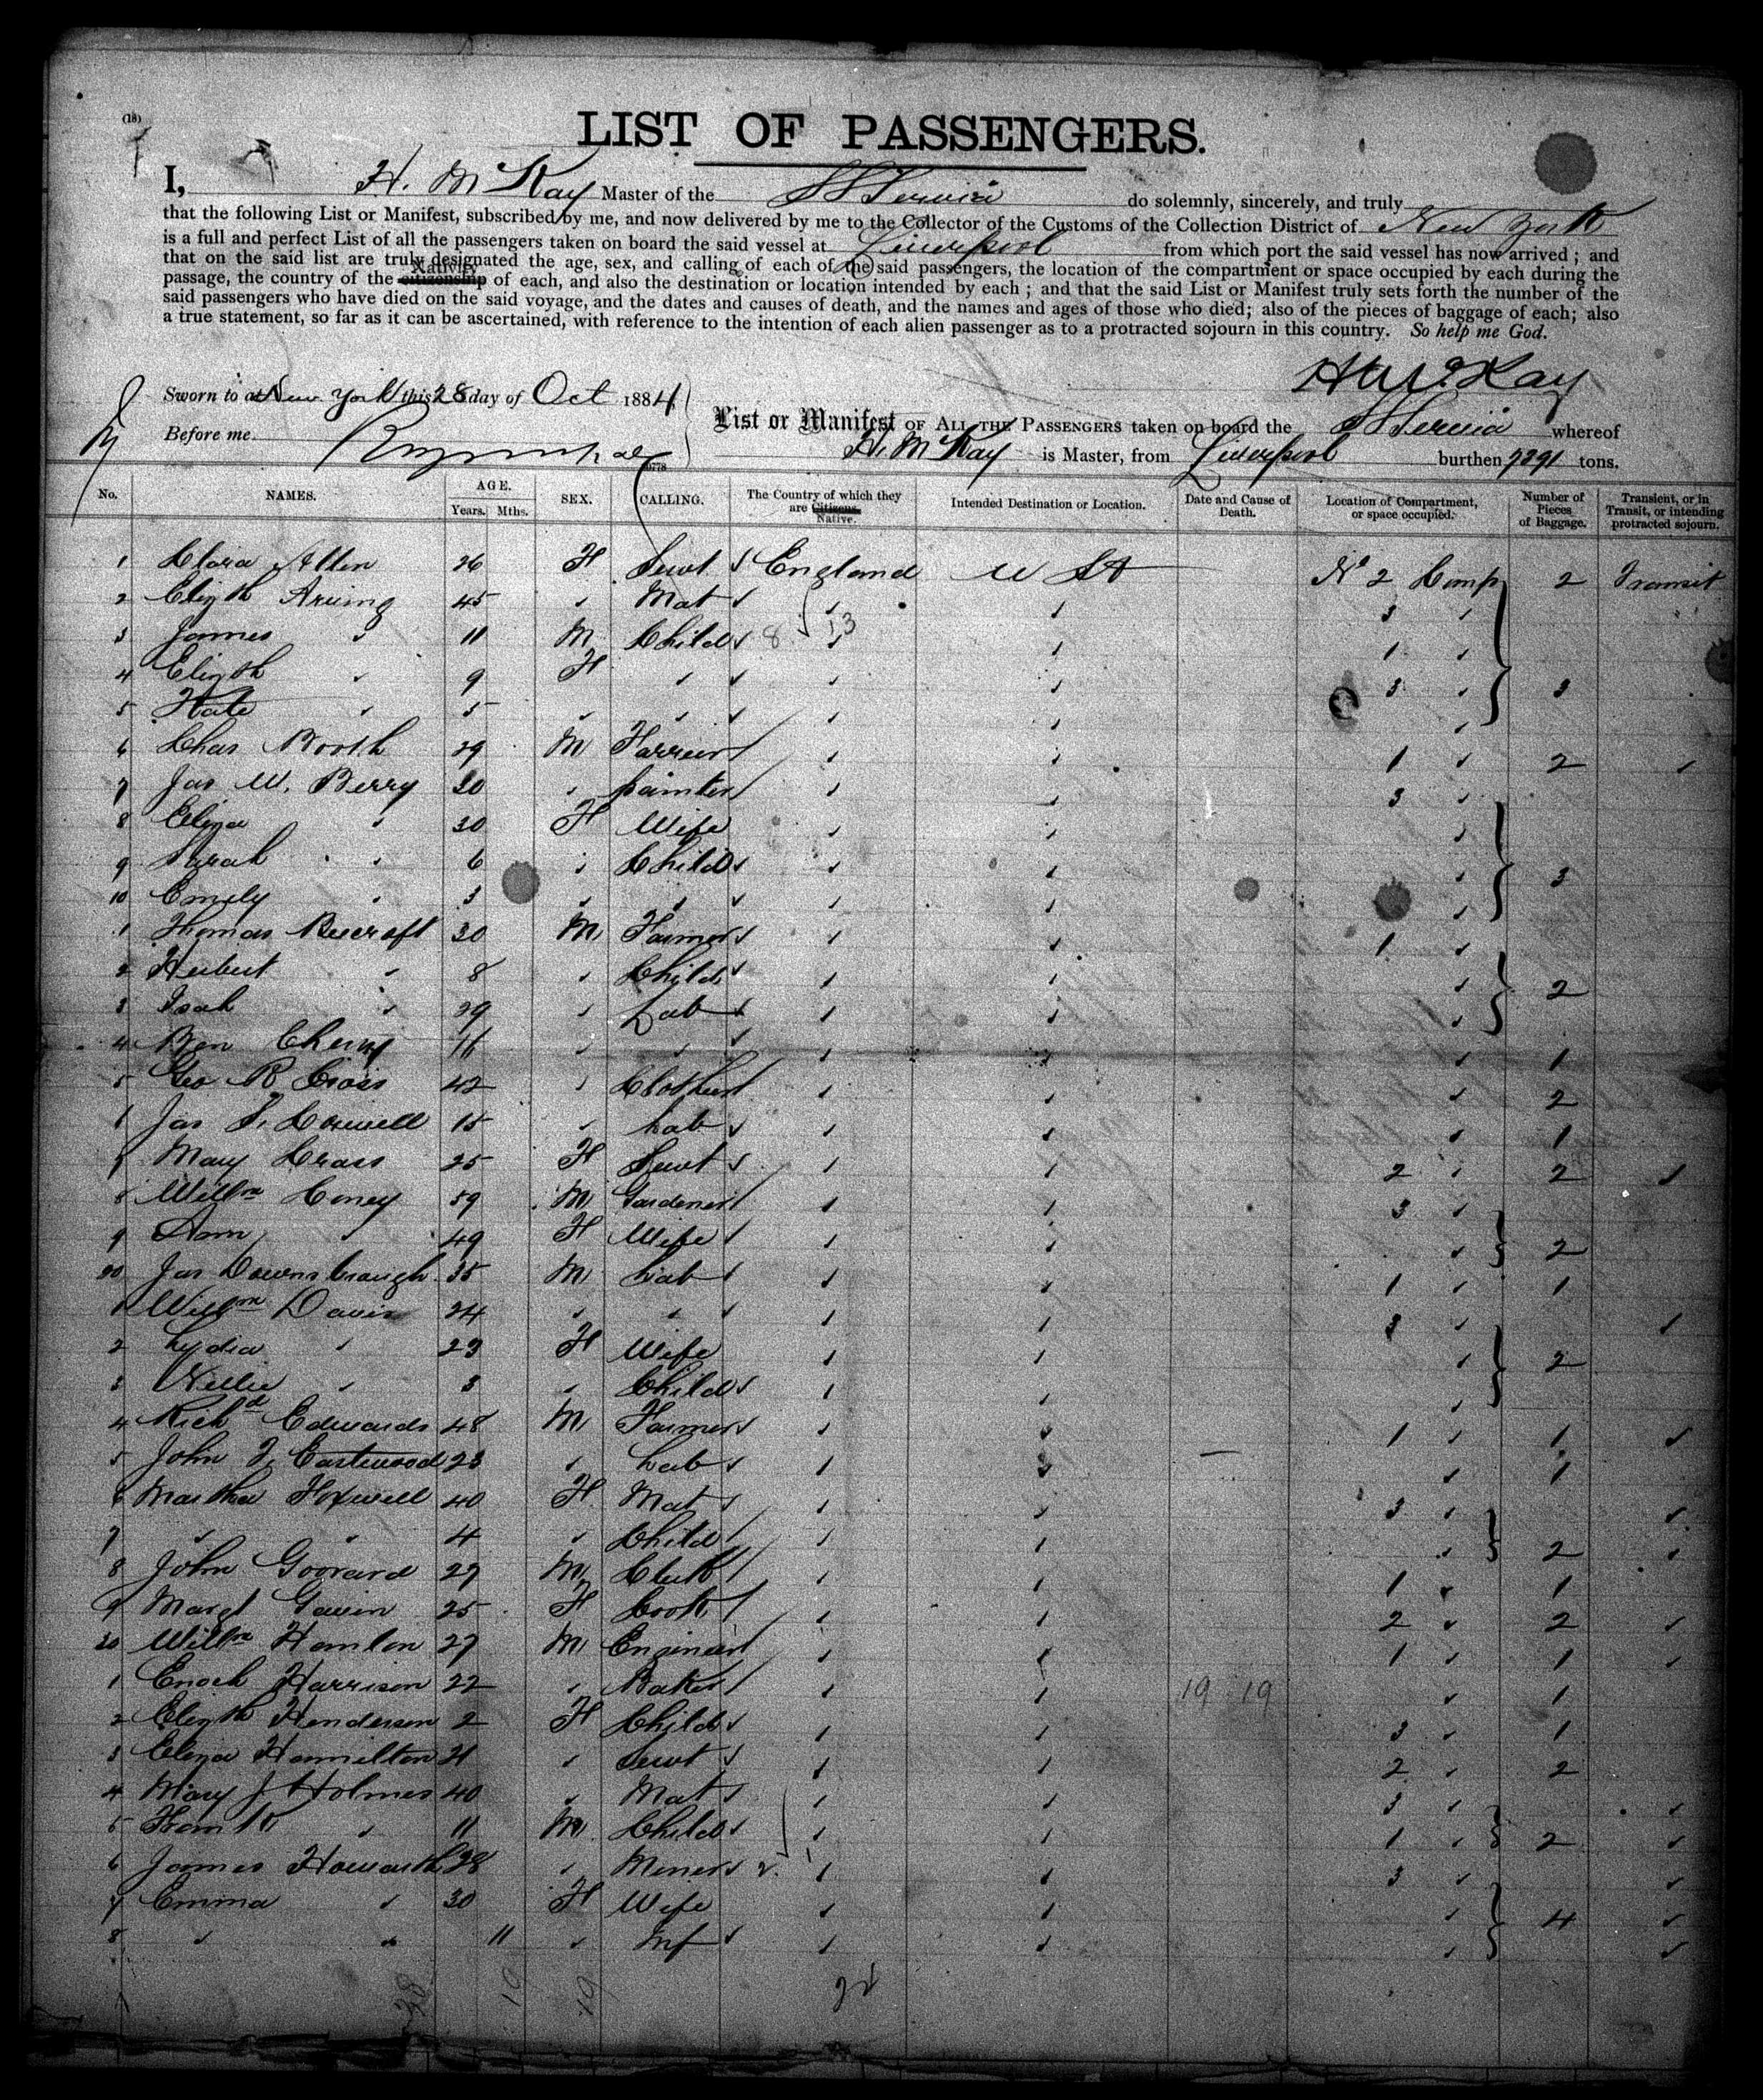 (18)
LIST OF PASSENGERS.
I, H. McKay Master of the SS Servia do solemnly, sincerely, and truly
that the following List or Manifest, subscribed by me, and now delivered by me to the Collector of the Customs of the Collection District of New York
is a full and perfect List of all the passengers taken on board the said vessel at Liverpool from which port the said vessel has now arrived ; and
that on the said list are truly designated the age, sex, and calling of each of the said passengers, the location of the compartment or space occupied by each during the
passage, the country of the citizenship Nativity of each, and also the destination or location intended by each ; and that the said List or Manifest truly sets forth the number of the
said passengers who have died on the said voyage, and the dates and causes of death, and the names and ages of those who died; also of the pieces of baggage of each; also
a true statement, so far as it can be ascertained, with reference to the intention of each alien passenger as to a protracted sojourn in this country. So help me God.
H McKay
Sworn to at New York this 28 day of Oct 1884
Before me
List or Manifest OF ALL THE PASSENGERS taken on board the SS Servia whereof
H. McKay is Master, from Liverpool burthen 7391 tons.
No. NAMES. AGE. Years. Mths. SEX. CALLING. The Country of which they are Citizens. Native. Intended Destination or Location. Date and Cause of Death. Location of Compartment, or space occupied. Number of Pieces of Baggage. Transient, or in Transit, or intending protracted sojourn.
1 Clara Allen 26 F Servt England U St No 2 Comp 2 Transit
2 Elizth 45 Mat 3
3 James 11 M Child 1
4 Elizth 9 F 3 3
5 Kate 5
6 Chas Booth 29 M Farrier 1 2
7 Jas W. Berry 30 painter 3
8 Eliza 30 F Wife
9 Sarah 6 Child 3
10 Emily 3
1 Thomas Beecroft 30 M Farmer 1
2 Herbert 8 Child 2
3 Isah 29 Lab
4 Ben 16 1
5 Geo R Cross 42 Clothier 2
6 Jas S. 15 Lab 1
7 Mary Crass 25 F Servt 2 2
8 Willm Coney 59 M Gardener 3
9 Ann 49 F Wife 2
20 Jas Downsbrough 35 M Lab 1 1
1 Willm Davis 24 3
2 Lydia 23 F Wife 2
3 Nellie 3 Child
4 Richd Edwards 48 M Farmer 1 1
5 John F. Eastwood 23 Lab 1
6 Martha Foxwell 40 F Mat 3
7 4 Child 2
8 John Goorard 27 M Clerk 1 1
9 Margt Gavin 25 F Cook 2 2
30 Willm Hamlin 27 M Engineer 1 1
1 Enoch Harrison 22 Baker 19 19 1
2 Elizth Henderson 2 F Child 3 1
3 Eliza Hamilton 21 Servt 2 2
4 Mary J Holmes 40 Mat 3
5 Frank 11 M Child 1 2
6 James Howarth 28 Miner 3
7 Emma 30 F Wife 4
8 11 Inf
38 19 19